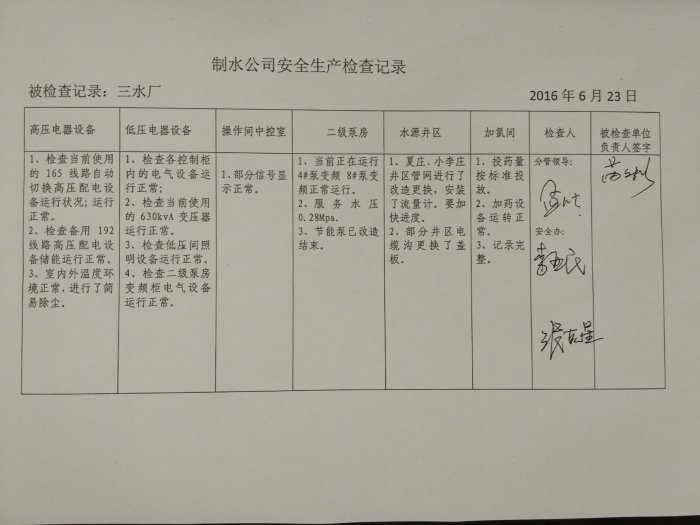 制水公司安全生产检查记录
被检查记录：三水厂
2016 年 6 月 23 日
高压电器设备
低压电器设备
操作间中控室
二级泵房
水源井区
加氯间
检查人
被检查单位
负责人签字
1、检查当前使用
的 165 线路自动
切换高压配电设
备运行状况；运行
正常。
2、检查备用 192
线路高压配电设
备储能运行正常。
3、室内外温度环
境正常，进行了简
易除尘。
1、检查各控制柜
内的电气设备运
行正常；
2、检查当前使用
的 630kvA 变压器
运行正常。
3、检查低压间照
明设备运行正常。
4、检查二级泵房
变频柜电气设备
运行正常。
1、部分信号显
示正常。
1、当前正在运行
4#泵变频 8#泵变
频正常运行。
2、服务水压
0.28Mpa.
3、节能泵已改造
结束。
1、夏庄、小李庄
井区管网进行了
改造更换，安装
了流量计。要加
快进度。
2、部分井区电
缆沟更换了盖
板。
1、投药量
按标准投
放。
2、加药设
备运转正
常。
3、记录完
整。
分管领导：
安全办：